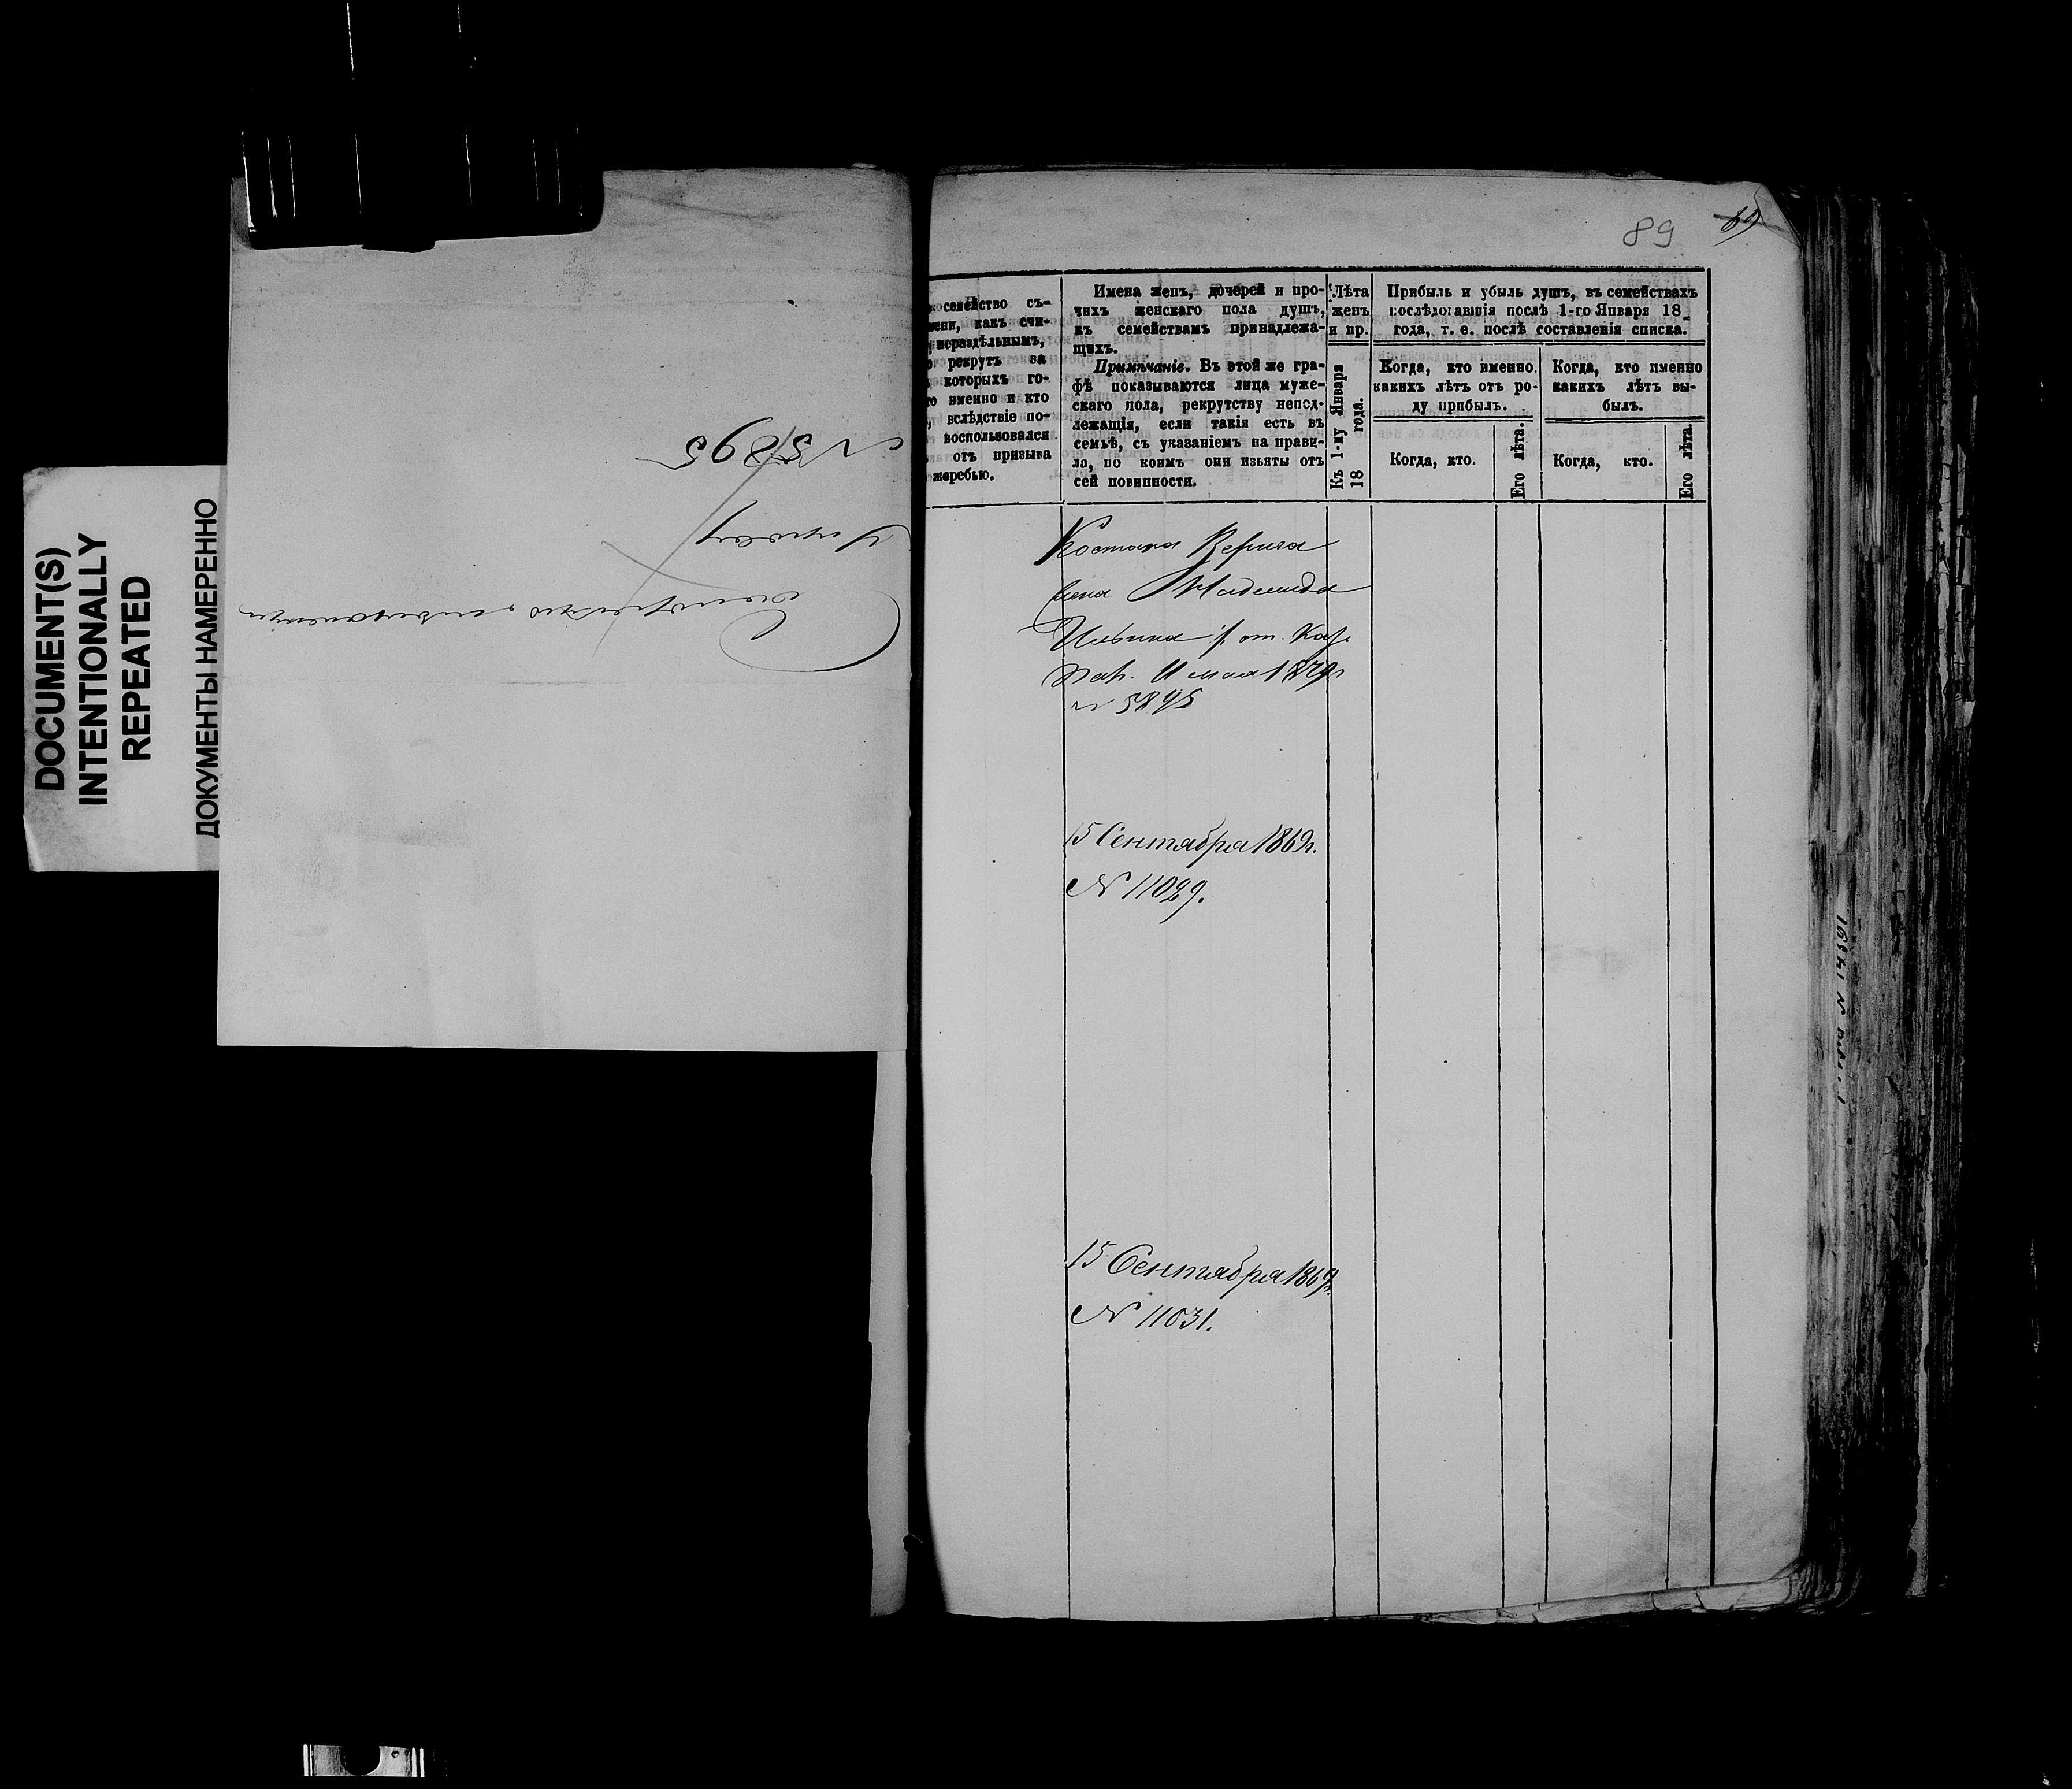 DOCUMENT(S)
INTENTIONALLY
REPEATED
ДОКУМЕНТЫ НАМЕРЕННО
N 5895
89
69
семейство съ-
какъ счи-
нераздѣльнымъ,
рекрутъ за
которыхъ го-
именно и кто
вслѣдствіе по-
воспользовался
отъ призыва
жеребью.
Имена женъ, дочерей и про-
чихъ женскаго пола душъ,
къ семействамъ принадлежа-
щихъ.
Примѣчаніе. Въ этой же гра-
фѣ показываются лица муже-
скаго пола, рекрутству непод-
лежащія, если такія есть въ
семьѣ, съ указаніемъ на прави-
ла, по коимъ они изъяты отъ
сей повинности.
Лѣта
женъ
и пр.
Къ 1-му Января
18 года.
Прибыль и убыль душъ, въ семействахъ
послѣдовавшія послѣ 1-го Января 18
года, т. е. послѣ составленія списка.
Когда, кто именно,
какихъ лѣтъ отъ ро-
ду прибылъ.
Когда, кто.
Его лѣта.
Когда, кто именно
какихъ лѣтъ вы-
былъ.
Когда, кто.
Его лѣта.
Надежда
Ильина
N 5895
15 Сентября 1869г.
N 11029.
15 Сентября 1869г.
N 11031.